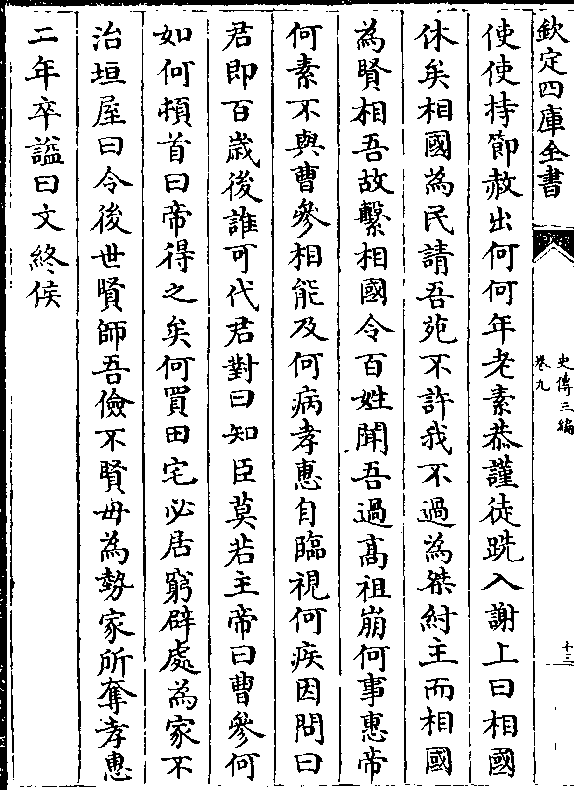 欽定四庫全書
史傳三編
卷九
十三
使使持節赦出何何年老素恭謹徒跣入謝上曰相國
休矣相國為民請吾苑不許我不過為桀紂主而相國
為賢相吾故繫相國令百姓聞吾過高祖崩何事惠帝
何素不與曹參相能及何病孝惠自臨視何疾因問曰
君即百歲後誰可代君對曰知臣莫若主帝曰曹參何
如何頓首曰帝得之矣何買田宅必居窮僻處為家不
治垣屋曰令後世賢師吾儉不賢毋為勢家所奪孝惠
二年卒謚曰文終侯